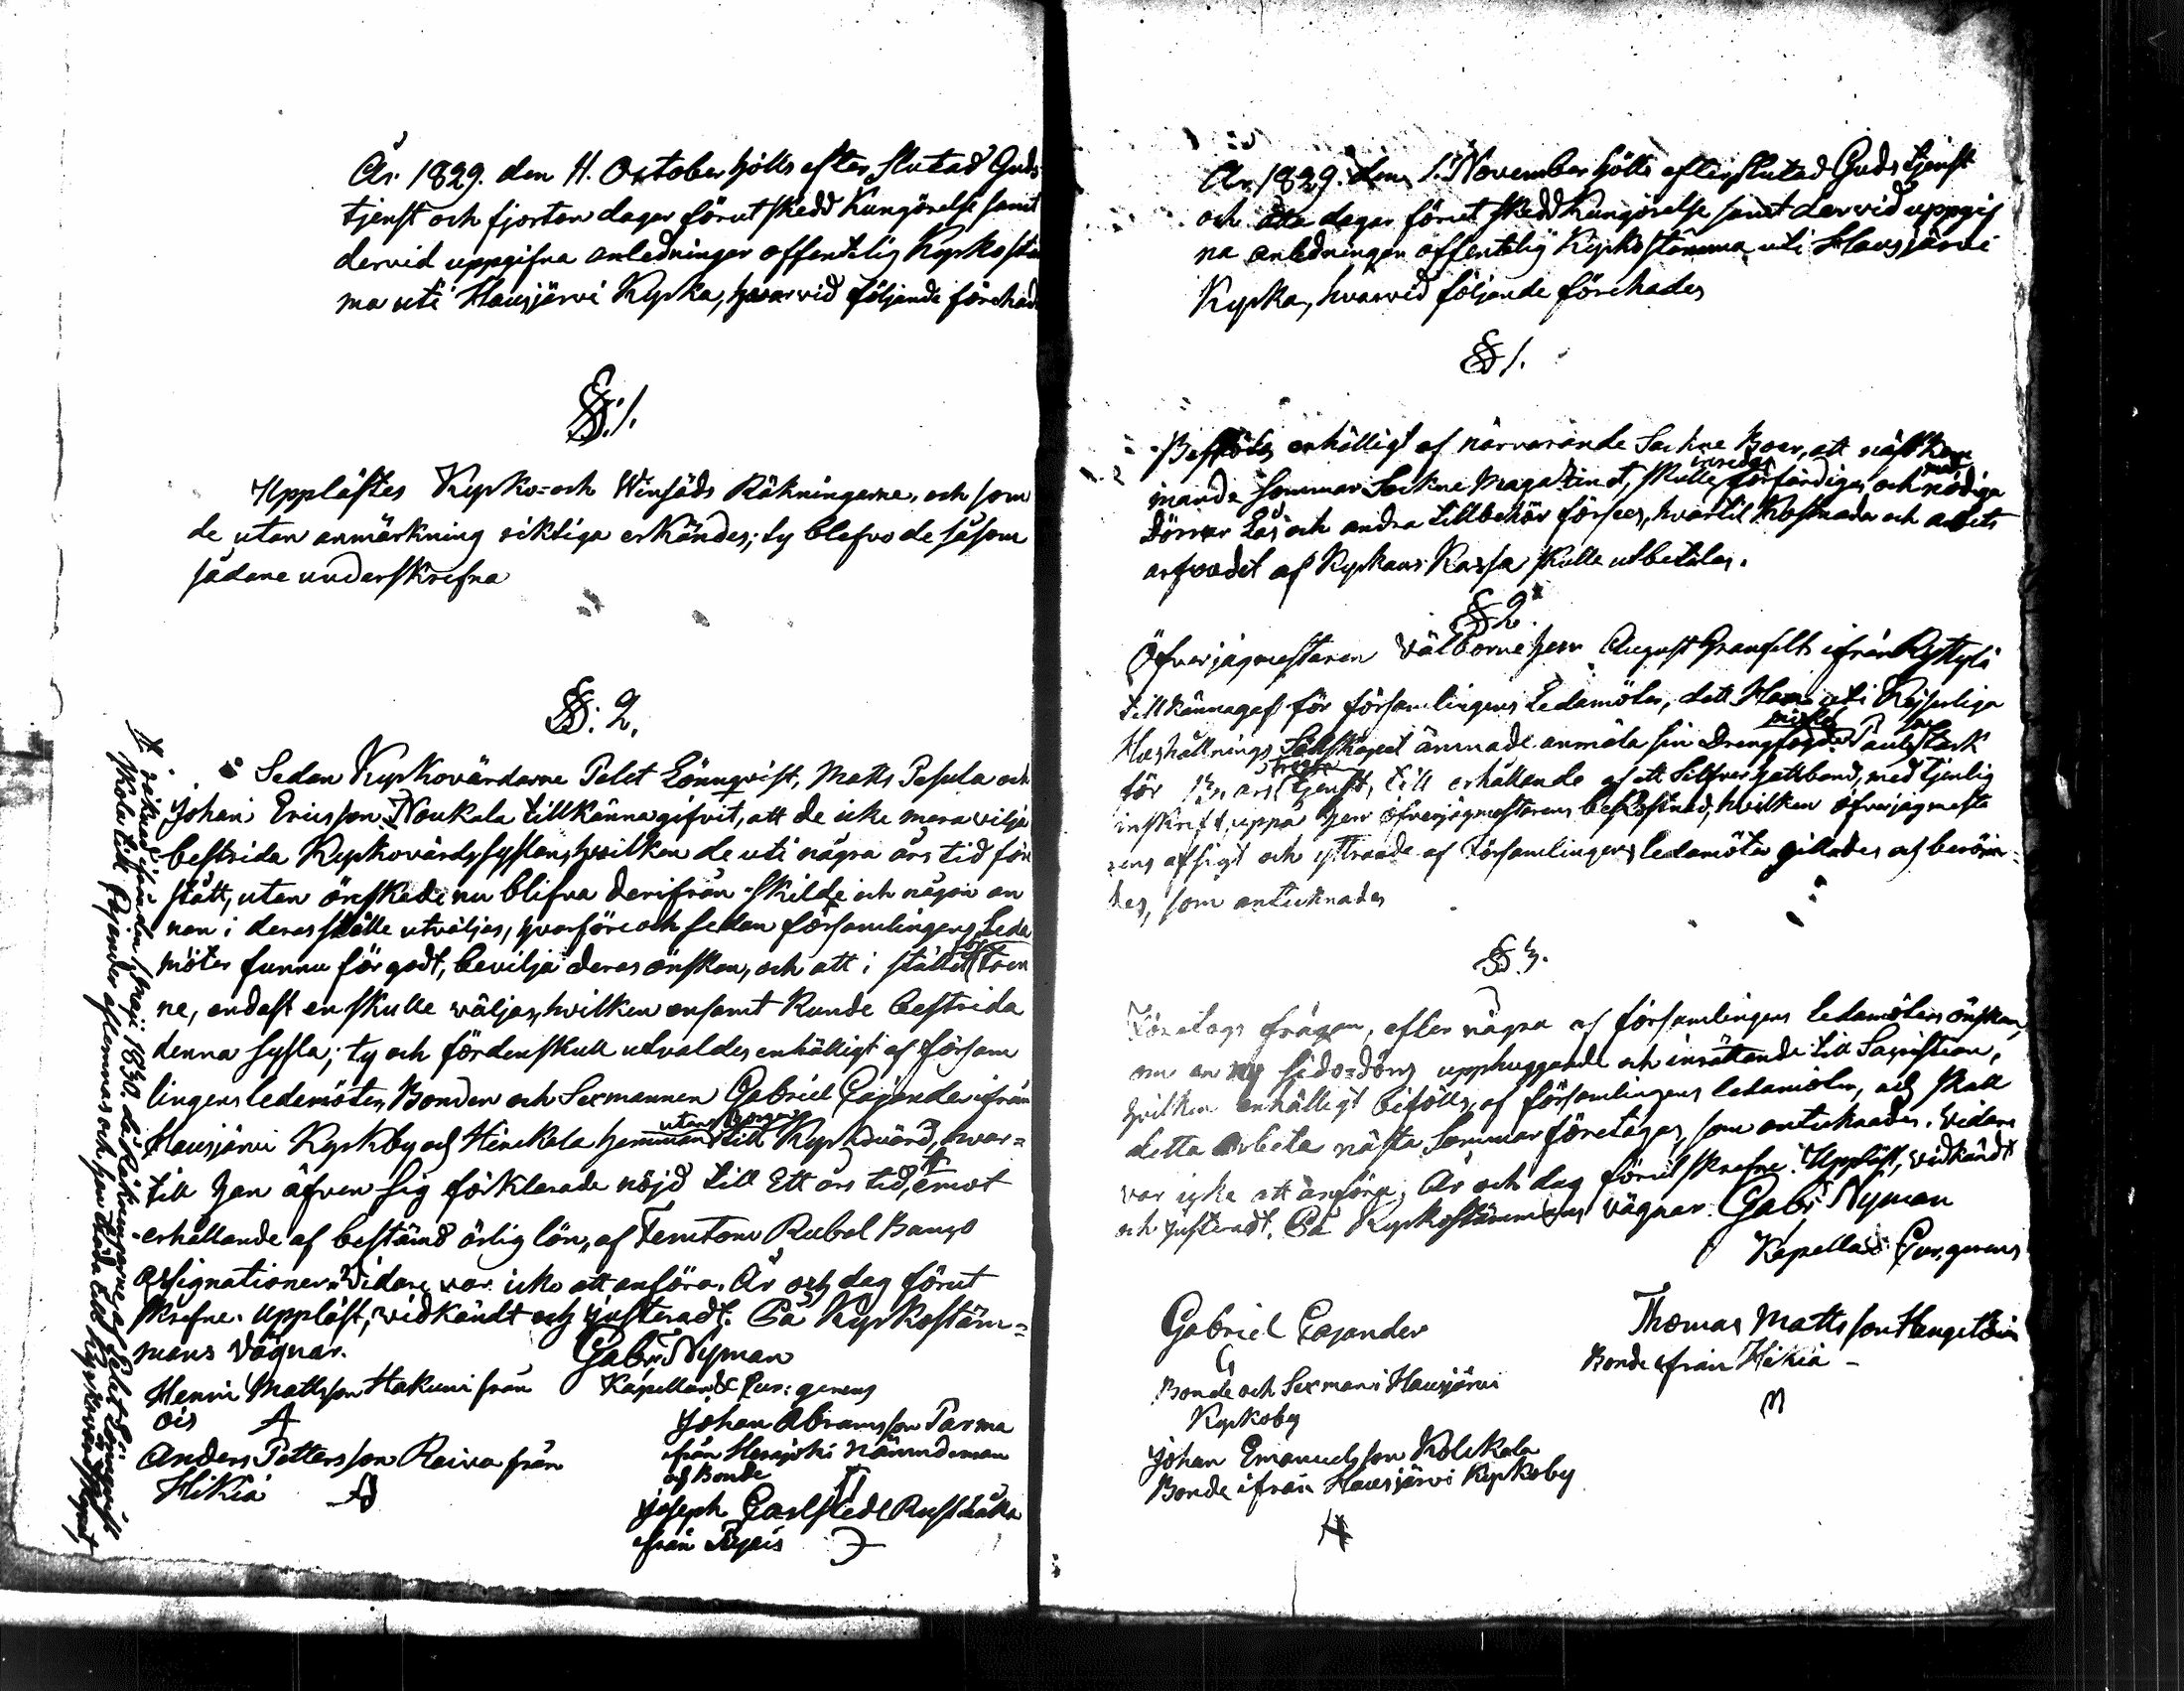 År 1829. den 11. October hölls efter slutad Guds
tjenst och fjorton dagar förut skedd Kungörelse samt
dervid uppgifna anledningar offentelig Kyrkostäm
ma uti Hausjärvi Kyrka, hvarvid följande förehades
§. 1.
Upplästes Kyrko- och Winsäds Räkningarne, och som
de utan anmärkning riktiga erkändes; ty blefvo de såsom
sådane underskrefna
§. 2.
Sedan Kyrkovärdarne Pelet Lönnqvist, Matts Pesula och
Johan Ericsson Noukala tillkännagifvit, att de icke mera vilja
bestrida Kyrkovärdssysslan, hvilken de uti några års tid före
stått, utan önskade nu blifva derifrån skilde och någon an
nan i deras ställe utväljas, hvarföre och sedan församlingens Leda
möter funno för godt, bevilja deras önskan, och att i stället för tven
ne, endast en skulle väljas, hvilken ensamt kunde bestrida
denna syssla; ty och fördenskull utvaldes enhälligt af försam
lingens ledamöter, Bonden och Sexmannen Gabriel Cajander ifrån
Hausjärvi Kyrkby och Hinckala hemman utan borgen till Kyrkovärd, hvar=
till han äfven sig förklarade nöjd till Ett års tid, # emot
erhållande af bestämd årlig lön, af Femton Rubel Banco
Assignationer. Vidare var icke att anföra. År och dag förut
skrefne. Uppläst, vidkändt och justeradt. På Kyrkostäm=
mans vägnar.
Gabr. Nyman
Kapellan & Cur: gerens
Henric Mattsson Hakuni från
Ois
Anders Pettersson Raiva från
Hikiä
Johan Abramsson Parma
ifrån Nämndeman
och Bonde
Joseph Carlstedt Rusthållare
ifrån
# räknad ifrån den 1830. då Räkningarne af Pelet Lönnqvist
skola till Cajander aflemnas och han
År 1829. den 1. November hölts efter slutad Gudstjenst
och åtta dagar förut skedd Kungörelse samt dervid uppgif
na anledningar offentelig Kyrkostämma uti Hausjärvi
Kyrka, hvarvid följande förehades
§ 1.
Beslöts enhälligt af närvarande Sockne Boer, att näst kom
mande sommar Sockne Magazinet, skulle inredas förfärdigas och med nödiga
Dörrar Lås och andra tillbehör förses, hvartil kostnader och arbets
arfvodet af Kyrkans Kassa skulle utbetalas.
§ 2.
Öfverjägmestaren Välborne herr August Granfelt ifrån Ryttylä
tillkännagaf för församlingens Ledamöter, det Han uti Kejserliga
Hushållnings Sällskapet ämnade anmäla sin Drengfogde
för års trogen tjenst, till erhållande af ett Silfver hattband, med tjenlig
inskrift, uppå herr öfverjägmestarens bekostnad, hvilken öfverjägmesta
rens afsigt och yttrande af Församlingens ledamöter gillades och beröm=
des, som antecknades
§ 3.
Företogs frågan, efter några af församlingens ledamöters önskan,
om en ny sido=dörs upphuggande och insättande till Sacristian,
hvilken enhälligt bifölls, af församlingens ledamöter, och skall
detta arbete nästa sommar företagas, som antecknades. Vidare
var icke att anföra; År och dag förut skrefne. Uppläst, vidkändt
och justeradt. På Kyrkostämmans vägnar. Gabr. Nyman
Kapellan & Cur. gerens
Gabriel Cajander
G
Bonde och Sexman i Hausjärvi
Kyrkoby
Thomas Mattsson
Bonde ifrån Hikiä
M
Johan Emanuelsson Kolckala
Bonde ifrån Hausjärvi Kyrkoby